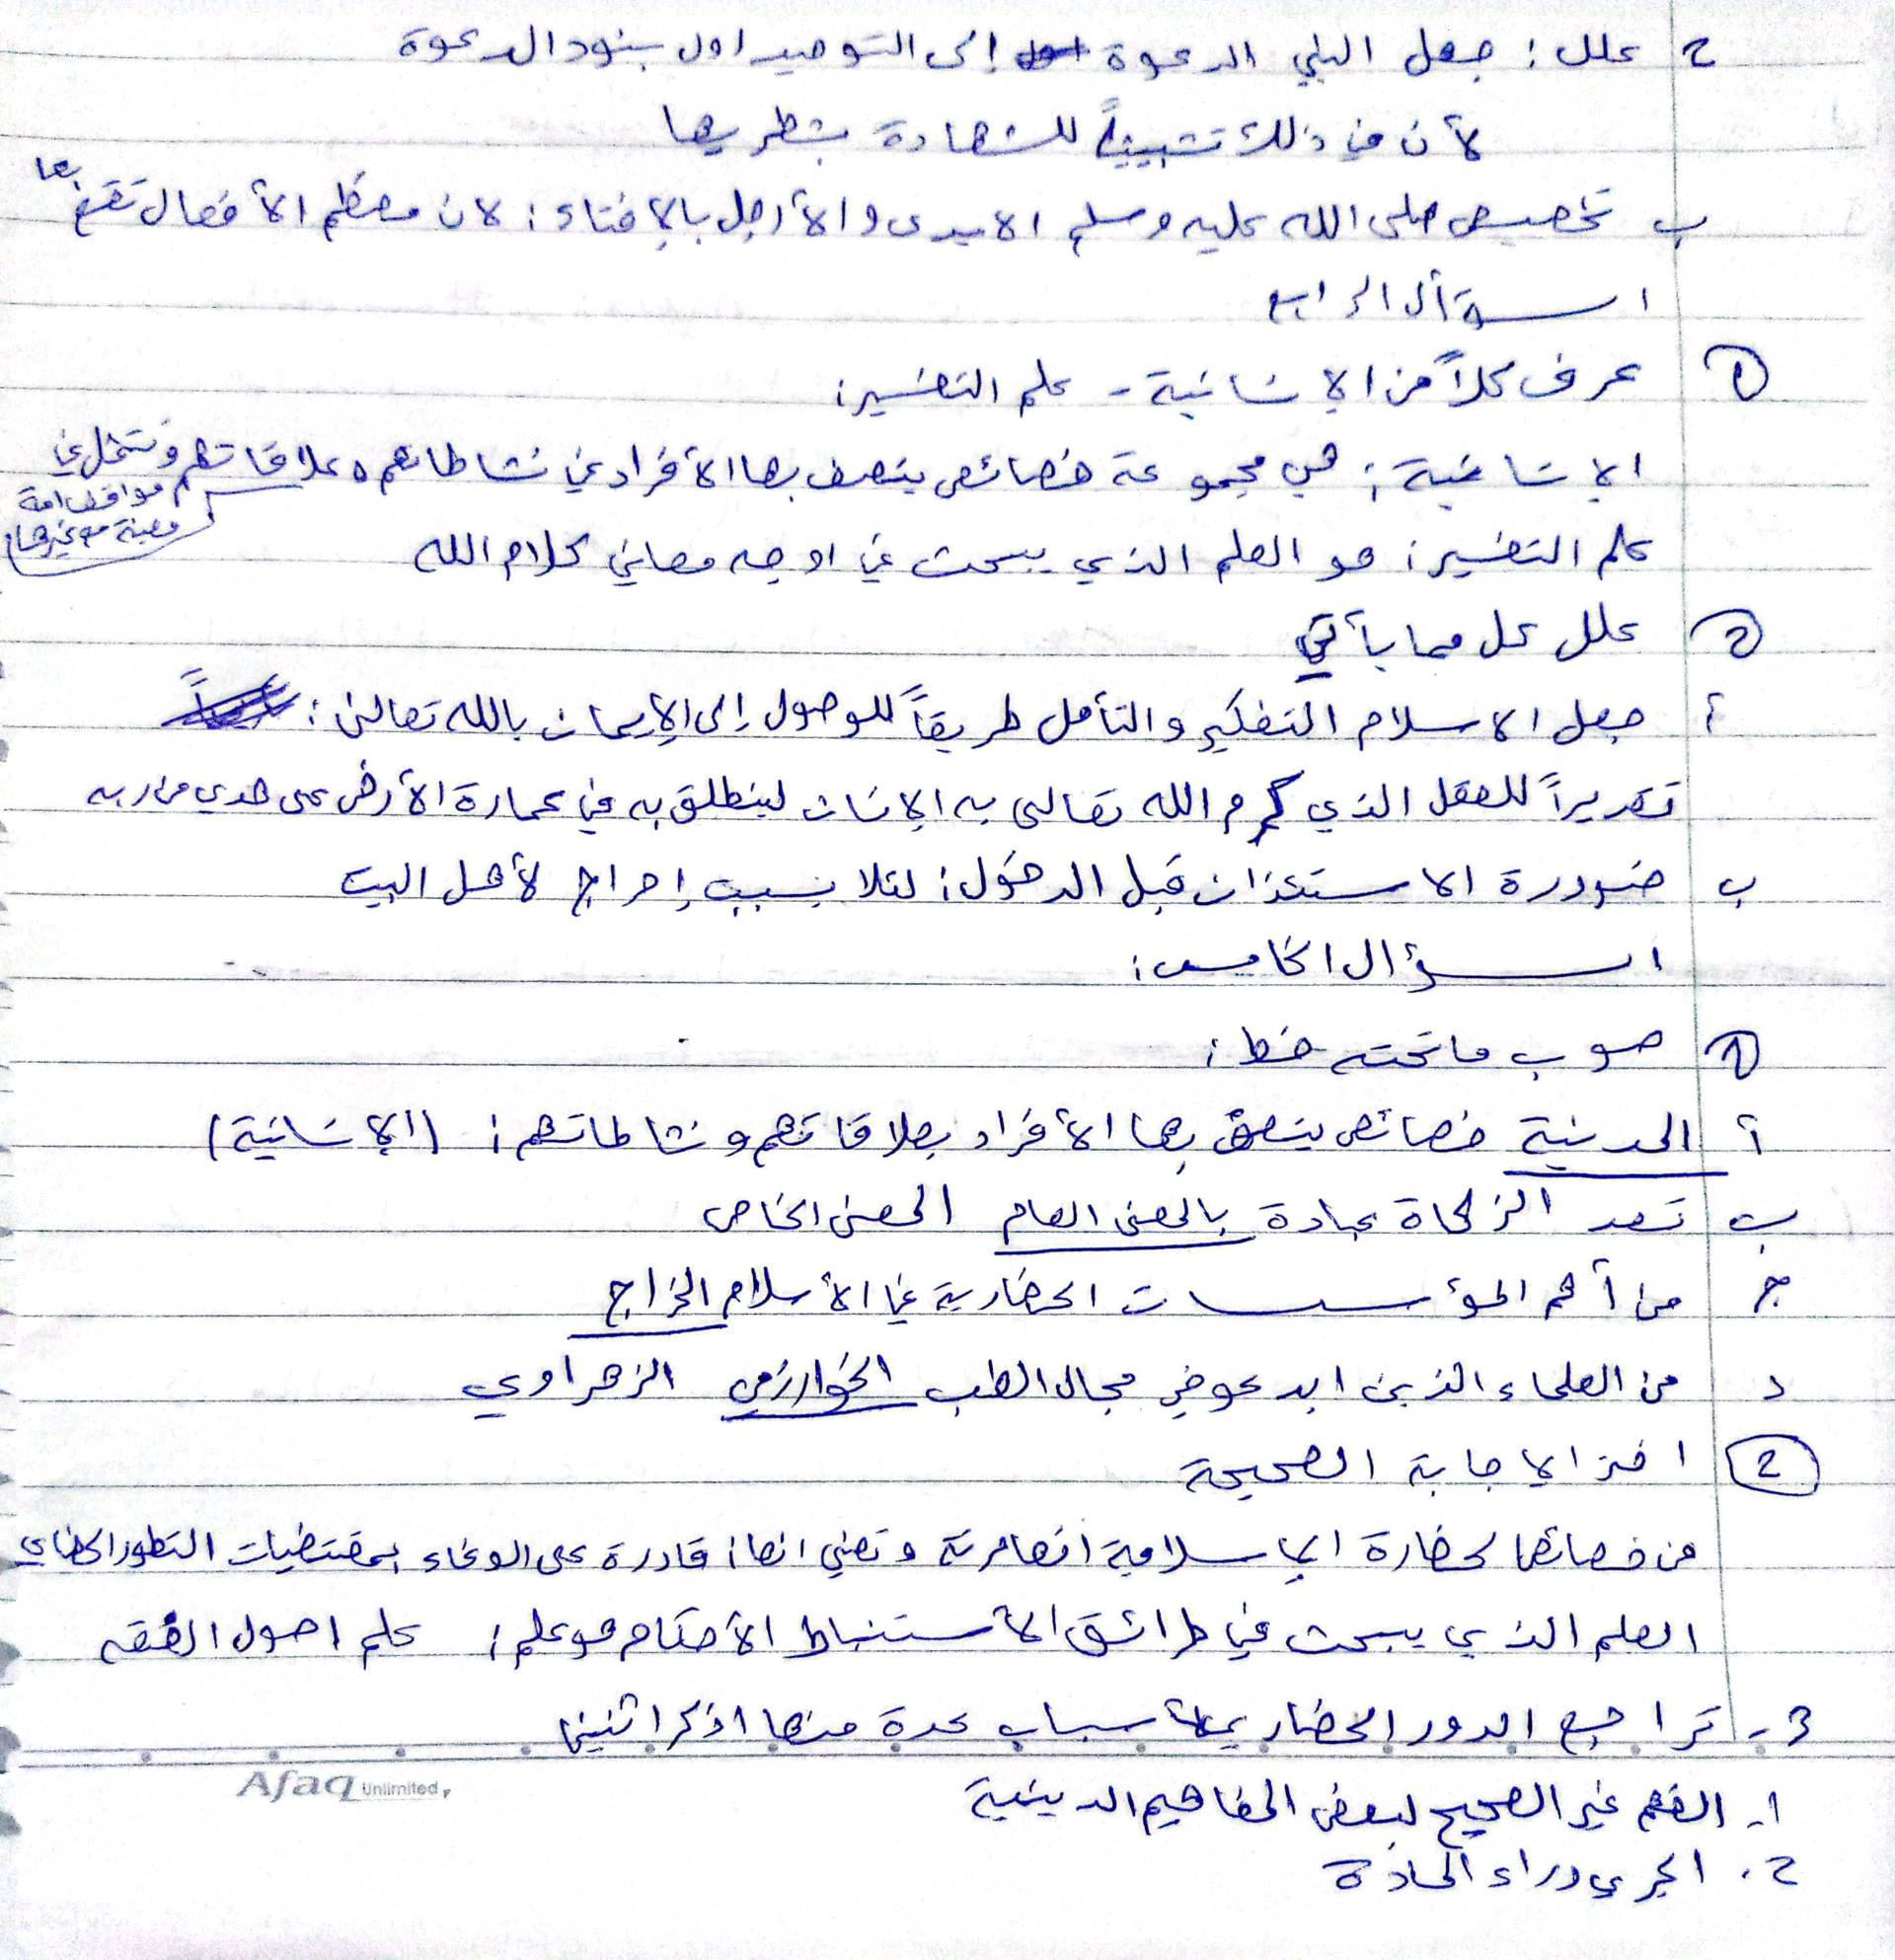 2 علل : جعل النبي الدعوة إلى التوحيد اول بنود الدعوة
لأن في ذلك تثبيتاً للشهادة بشطريها
ب تخصيص صلى الله عليه وسلم الايدي والأرجل بالإفتاء : لان معظم الأفعال تقع بها
السؤال الرابع
1 عرف كلاً من الإنسانية - علم التفسير :
الإنسانية : هي مجموعة خصائص يتصف بها الأفراد في نشاطاتهم وعلاقاتهم وتتمثل في
مواقف امة
معينة مع غيرها
علم التفسير : هو العلم الذي يبحث في اوجه معاني كلام الله
2 علل كل مما يأتي
أ جعل الاسلام التفكير والتأمل طريقاً للوصول إلى الإيمان بالله تعالى :
تقديراً للعقل الذي كرم الله تعالى به الإنسان لينطلق به في عمارة الأرض على هدي من ربه
ب ضرورة الاستئذان قبل الدخول : لئلا يسبب إحراج لأهل البيت
السؤال الخامس :
1 صوب ما تحته خط :
أ المدنية خصائص يتصف بها الأفراد بعلاقاتهم ونشاطاتهم : (الإنسانية)
ب تعد الزكاة عبادة بالمعنى العام المعنى الخاص
ج من أهم المؤسسات الحضارية في الأسلام الخراج
د من العلماء الذين ابدعو في مجال الطب الخوارزمي الزهراوي
2 اختر الاجابة الصحيحة
من خصائص الحضارة الإسلامية انها مرنة وتعني انها : قادرة على الوفاء بمقتضيات التطور الحضاري
العلم الذي يبحث في طرائق الأستنباط الأحكام هو علم : علم اصول الفقه
3 - تراجع الدور الحضاري لأسباب عدة منها اذكر اثنين
Afaq Unlimited
1. الفهم غير الصحيح لبعض المفاهيم الدينية
2. الجري وراء المادة